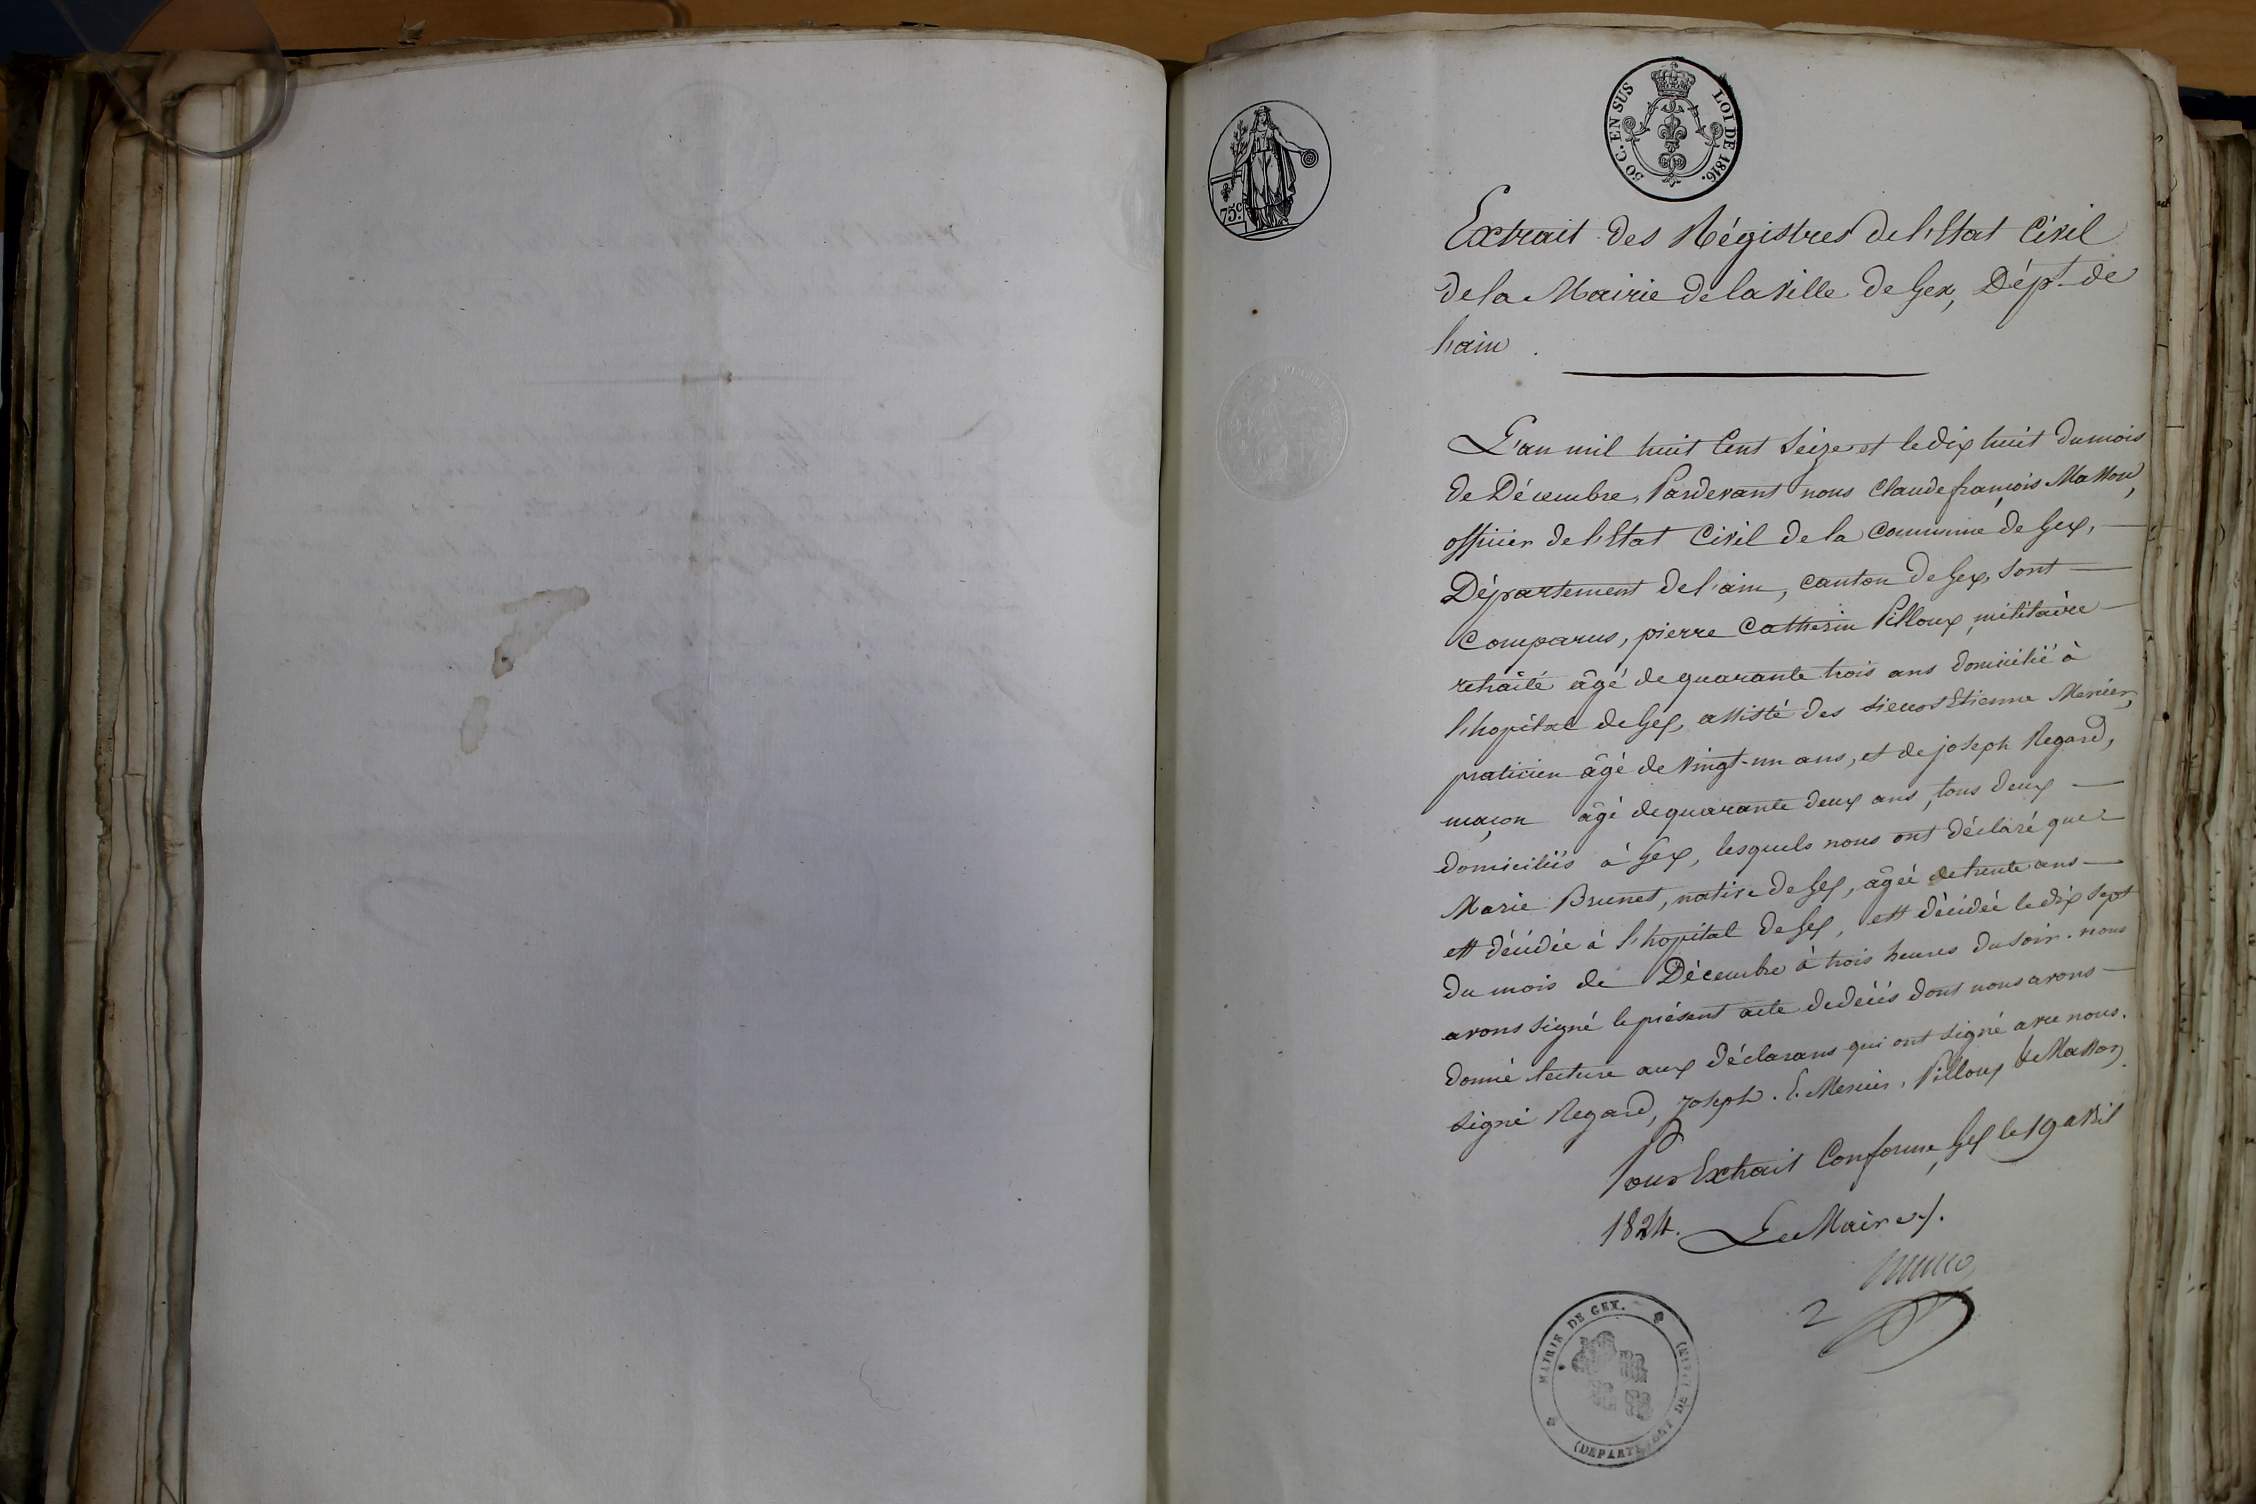 50 C. EN SUS
LOI DE 1816.
75c
Extrait des Régistres de l'Etat Civil
de la Mairie de la Ville de Gex, Dépt. de
l'ain.
L'an mil huit Cent Seize et le dix huit du mois
de Décembre, Pardevant nous Claude françois Masson,
officier de l'Etat Civil de la Commune de Gex,
Département de l'ain, canton de Gex, sont
Comparus, pierre Catherin Pilloux, militaire
retraité âgé de quarante trois ans domicilié à
l'hopital de Gex, assisté des sieurs Etienne Mercier,
praticien âgé de vingt-un ans, et de joseph Regard,
maçon âgé de quarante deux ans, tous deux
domiciliés à Gex, lesquels nous ont déclaré que
Marie Brunet, native de Gex, âgée de trente ans
est décédée à l'hopital de Gex, est décédée le dix sept
du mois de Décembre à trois heures du soir. nous
avons signé le présent acte de décès dont nous avons
donné lecture aux déclarans qui ont signé avec nous.
Signé Regard, Joseph. E. Mercier, Pilloux & Masson
Pour Extrait Conforme, Gex le 19 avril
1824. Le Maire
2
MAIRIE DE GEX.
(DEPARTEMENT DE